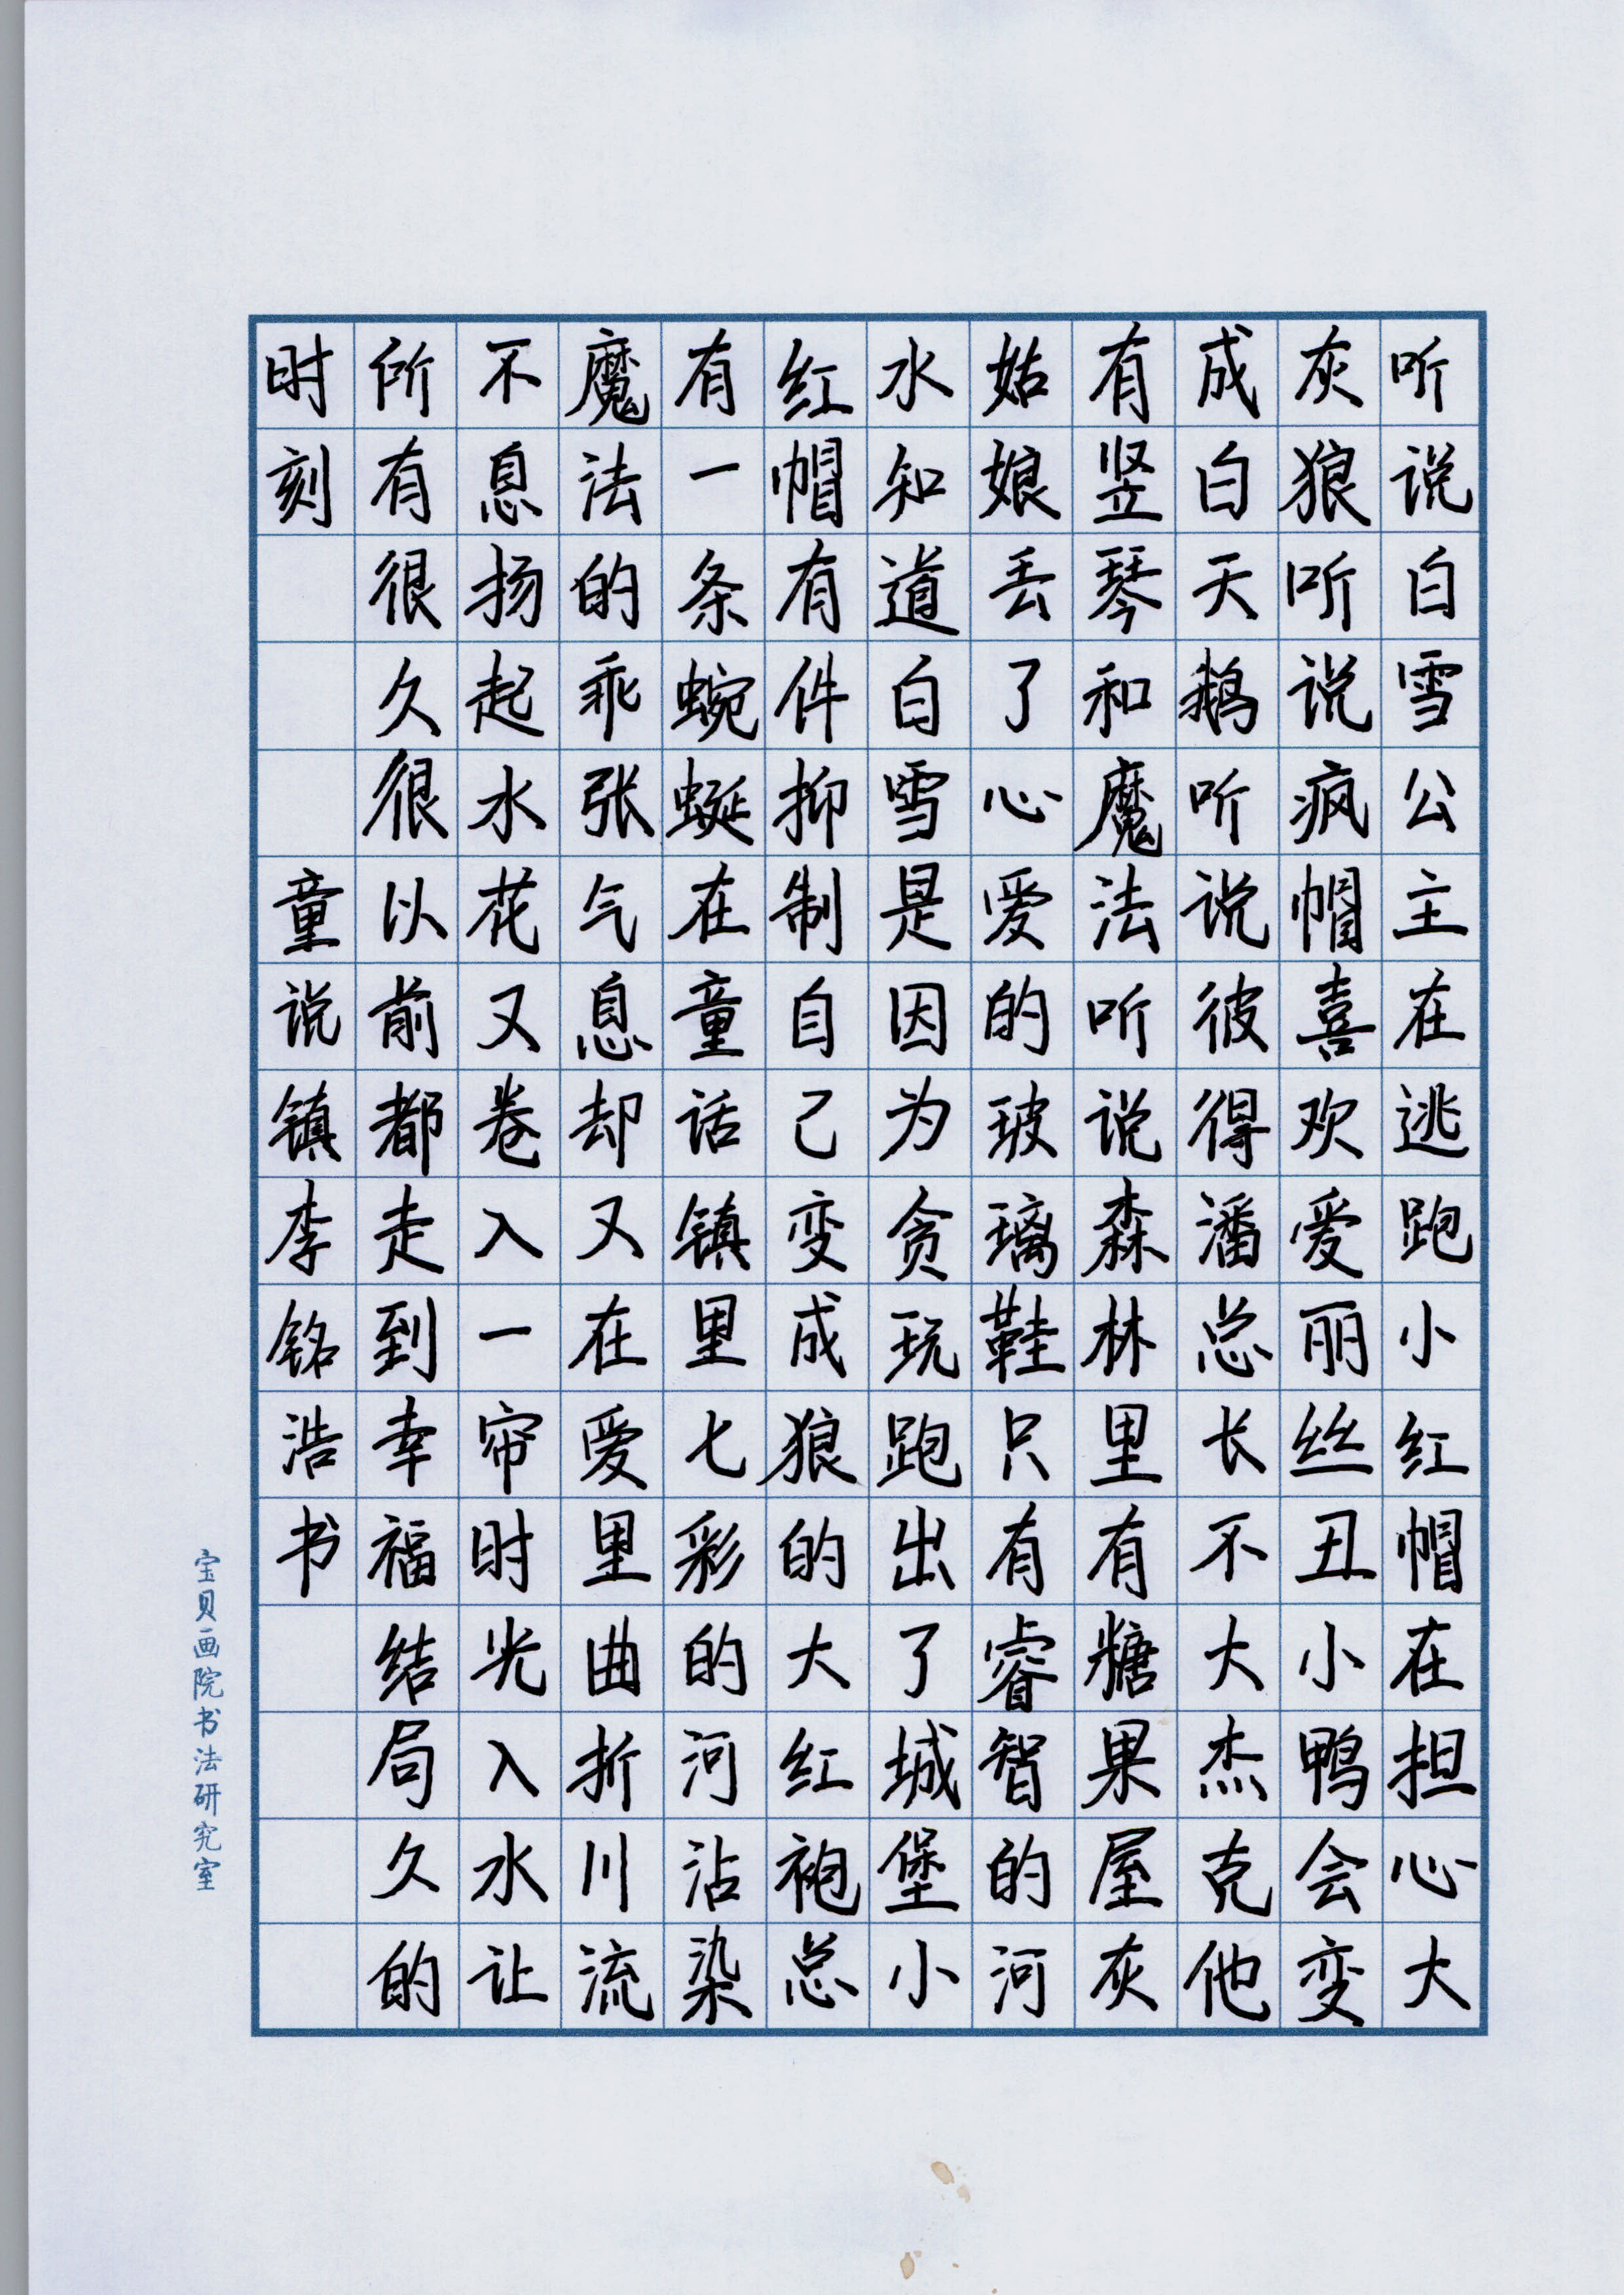 听说白雪公主在逃跑小红帽在担心大
灰狼听说疯帽喜欢爱丽丝丑小鸭会变
成白天鹅听说彼得潘总长不大杰克他
有竖琴和魔法听说森林里有糖果屋灰
姑娘丢了心爱的玻璃鞋只有睿智的河
水知道白雪是因为贪玩跑出了城堡小
红帽有件抑制自己变成狼的大红袍总
有一条蜿蜒在童话镇里七彩的河沾染
魔法的乖张气息却又在爱里曲折川流
不息扬起水花又卷入一帘时光入水让
所有很久很以前都走到幸福结局久的
时刻
童说镇李铭浩书
宝贝画院书法研究室